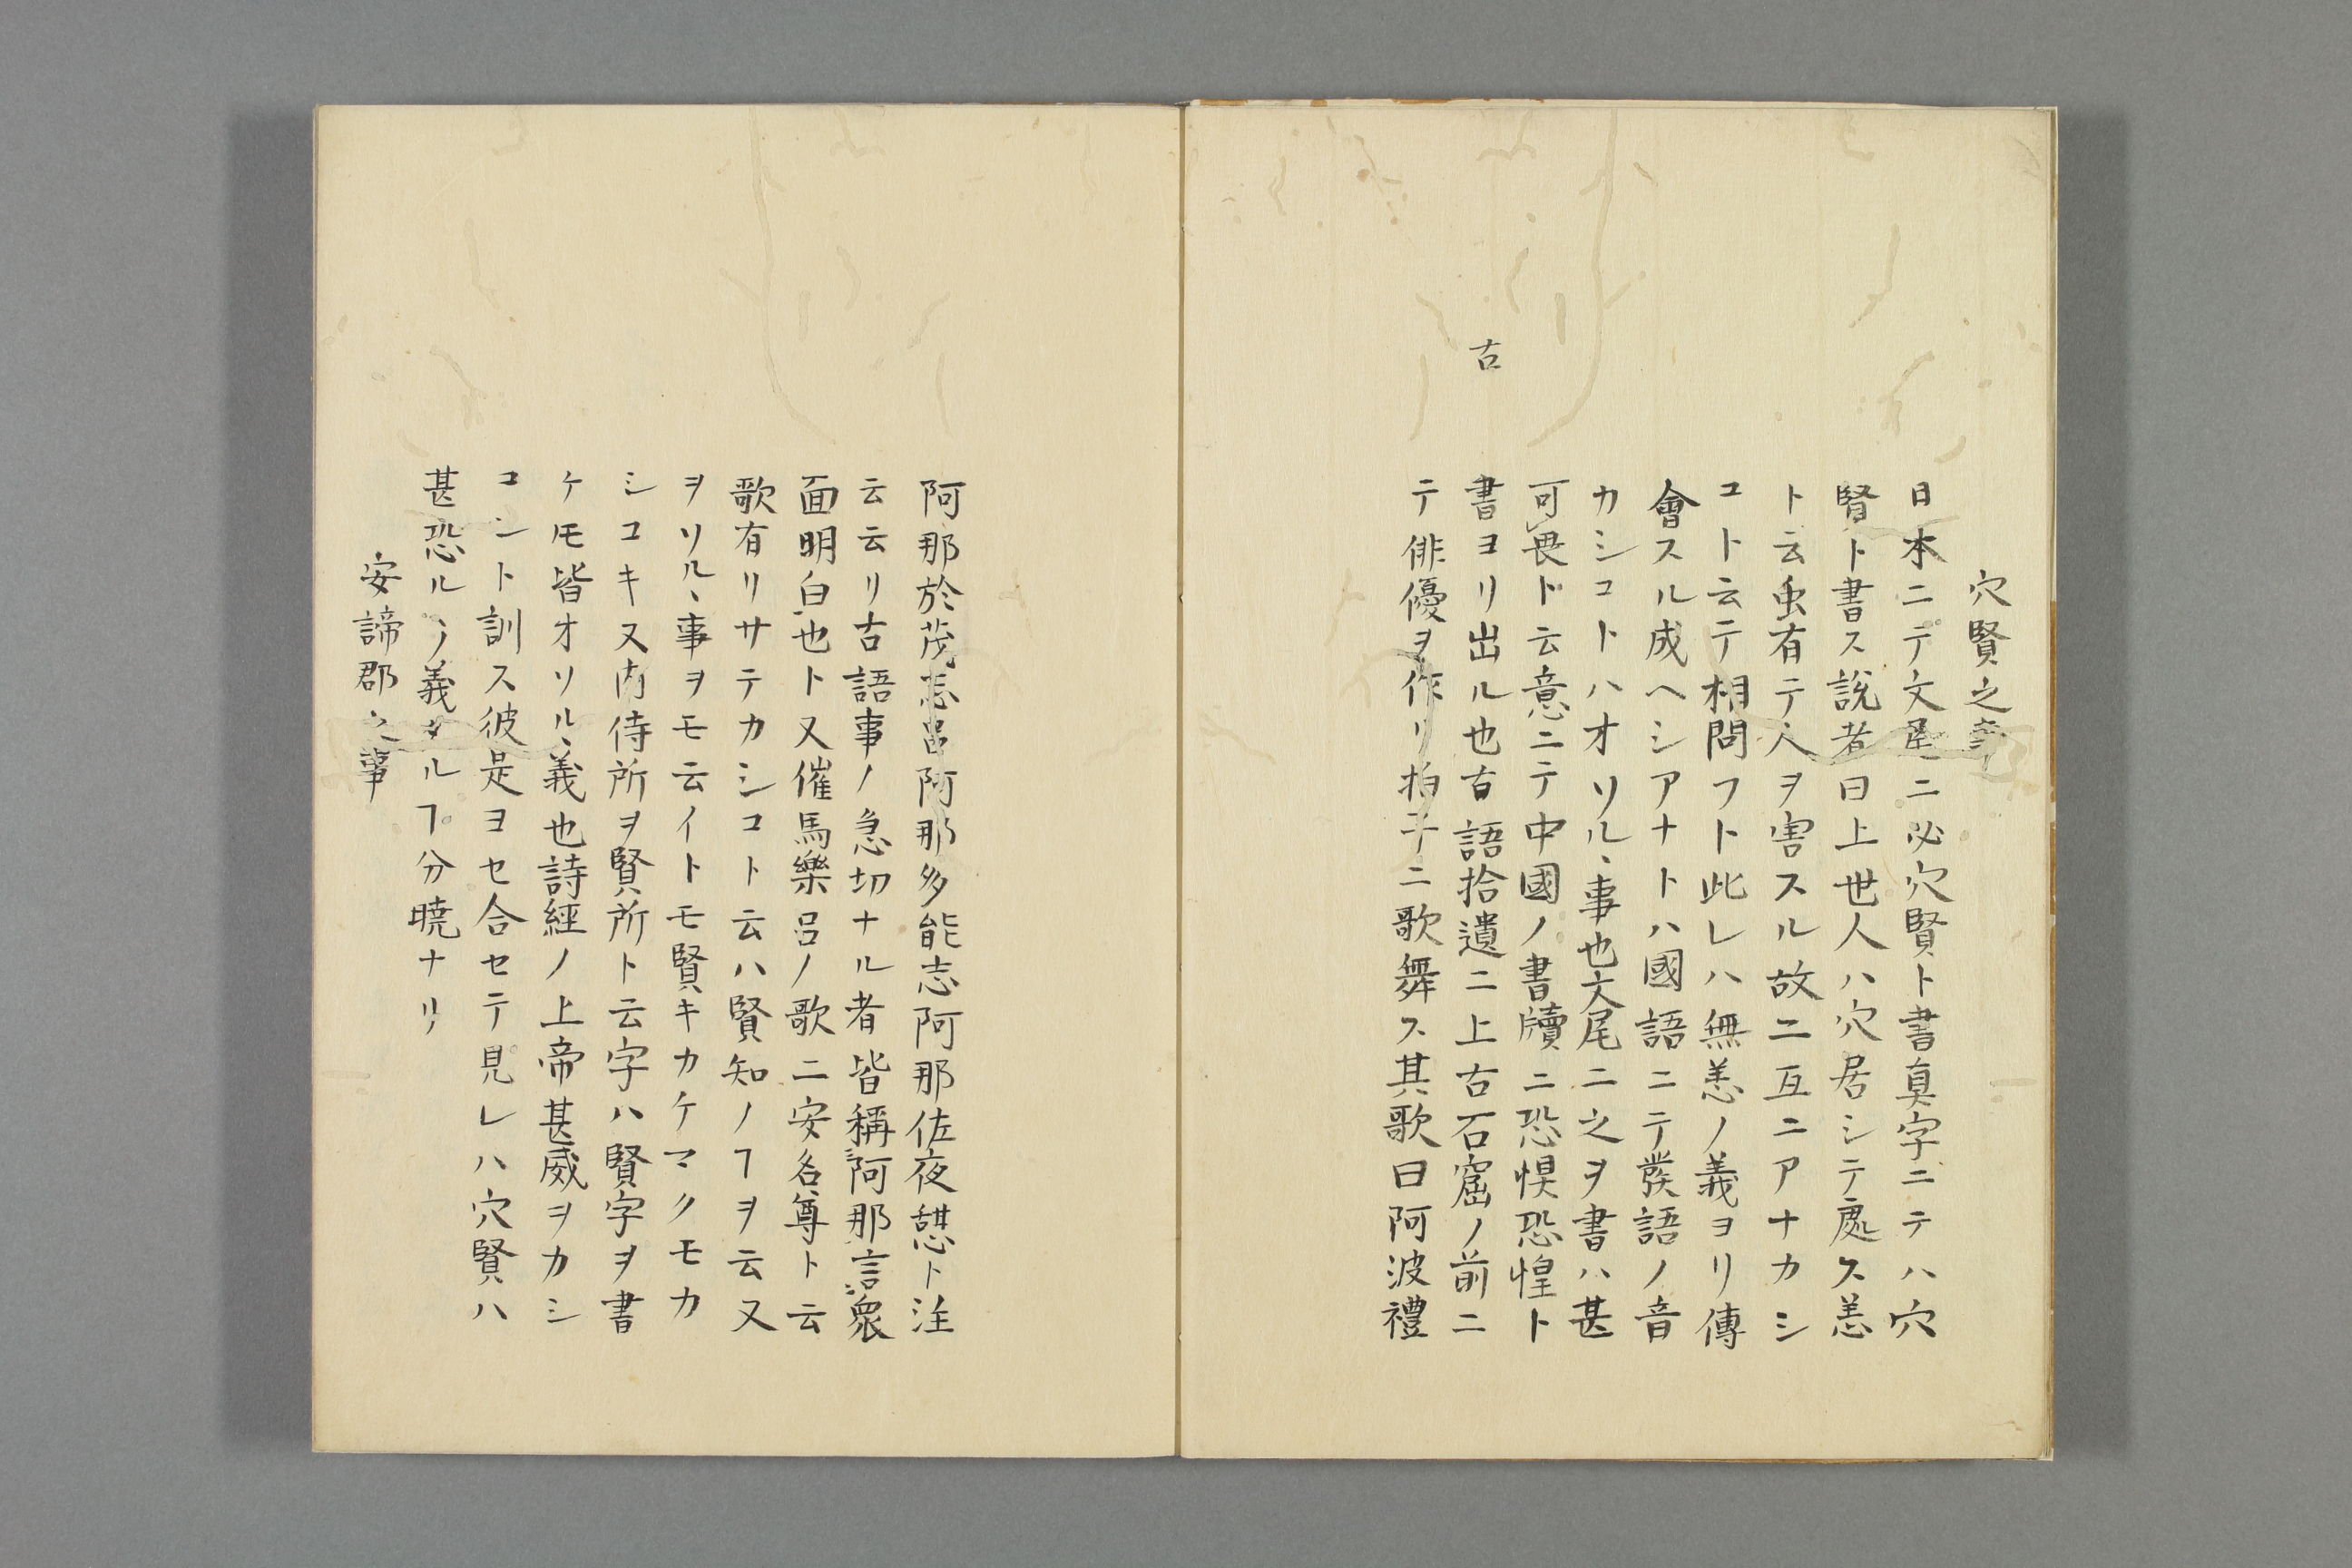 穴賢之事
日本ニテ文尾ニ必穴賢ト書真字ニテハ穴
賢ト書ス説者曰上世人ハ穴居シテ處ス恙
ト云虫有テ人ヲ害スル故ニ互ニアナカシ
コト云テ相問フト此レハ無恙ノ義ヨリ傳
會スル成ヘシアナトハ國語ニテ発語ノ音
カシコトハオソル、事也文尾ニ之ヲ書ハ甚
可畏ト云意ニテ中國ノ書牘ニ恐惧恐惶ト
古
書ヨリ出ル也古語拾遺ニ上古石窟ノ前ニ
テ俳優ヲ作リ拍子ニ歌舞ス其歌曰阿波禮
阿那於茂志呂阿那多能志阿那佐夜憇ト注
云云リ古語事ノ急切ナル者皆稱阿那言衆
面明白也ト又催馬樂呂ノ歌ニ安名尊ト云
歌有リサテカシコト云ハ賢知ノヿヲ云又
ヲソル、事ヲモ云イトモ賢キカケマクモカ
シコキ又内侍所ヲ賢所ト云字ハ賢字ヲ書
ケモ皆オソル、義也詩經ノ上帝甚威ヲカシ
コシト訓ス彼是ヨセ合セテ見レハ穴賢ハ
甚恐ル、ノ義タルヿ分暁ナリ
安諦郡之事